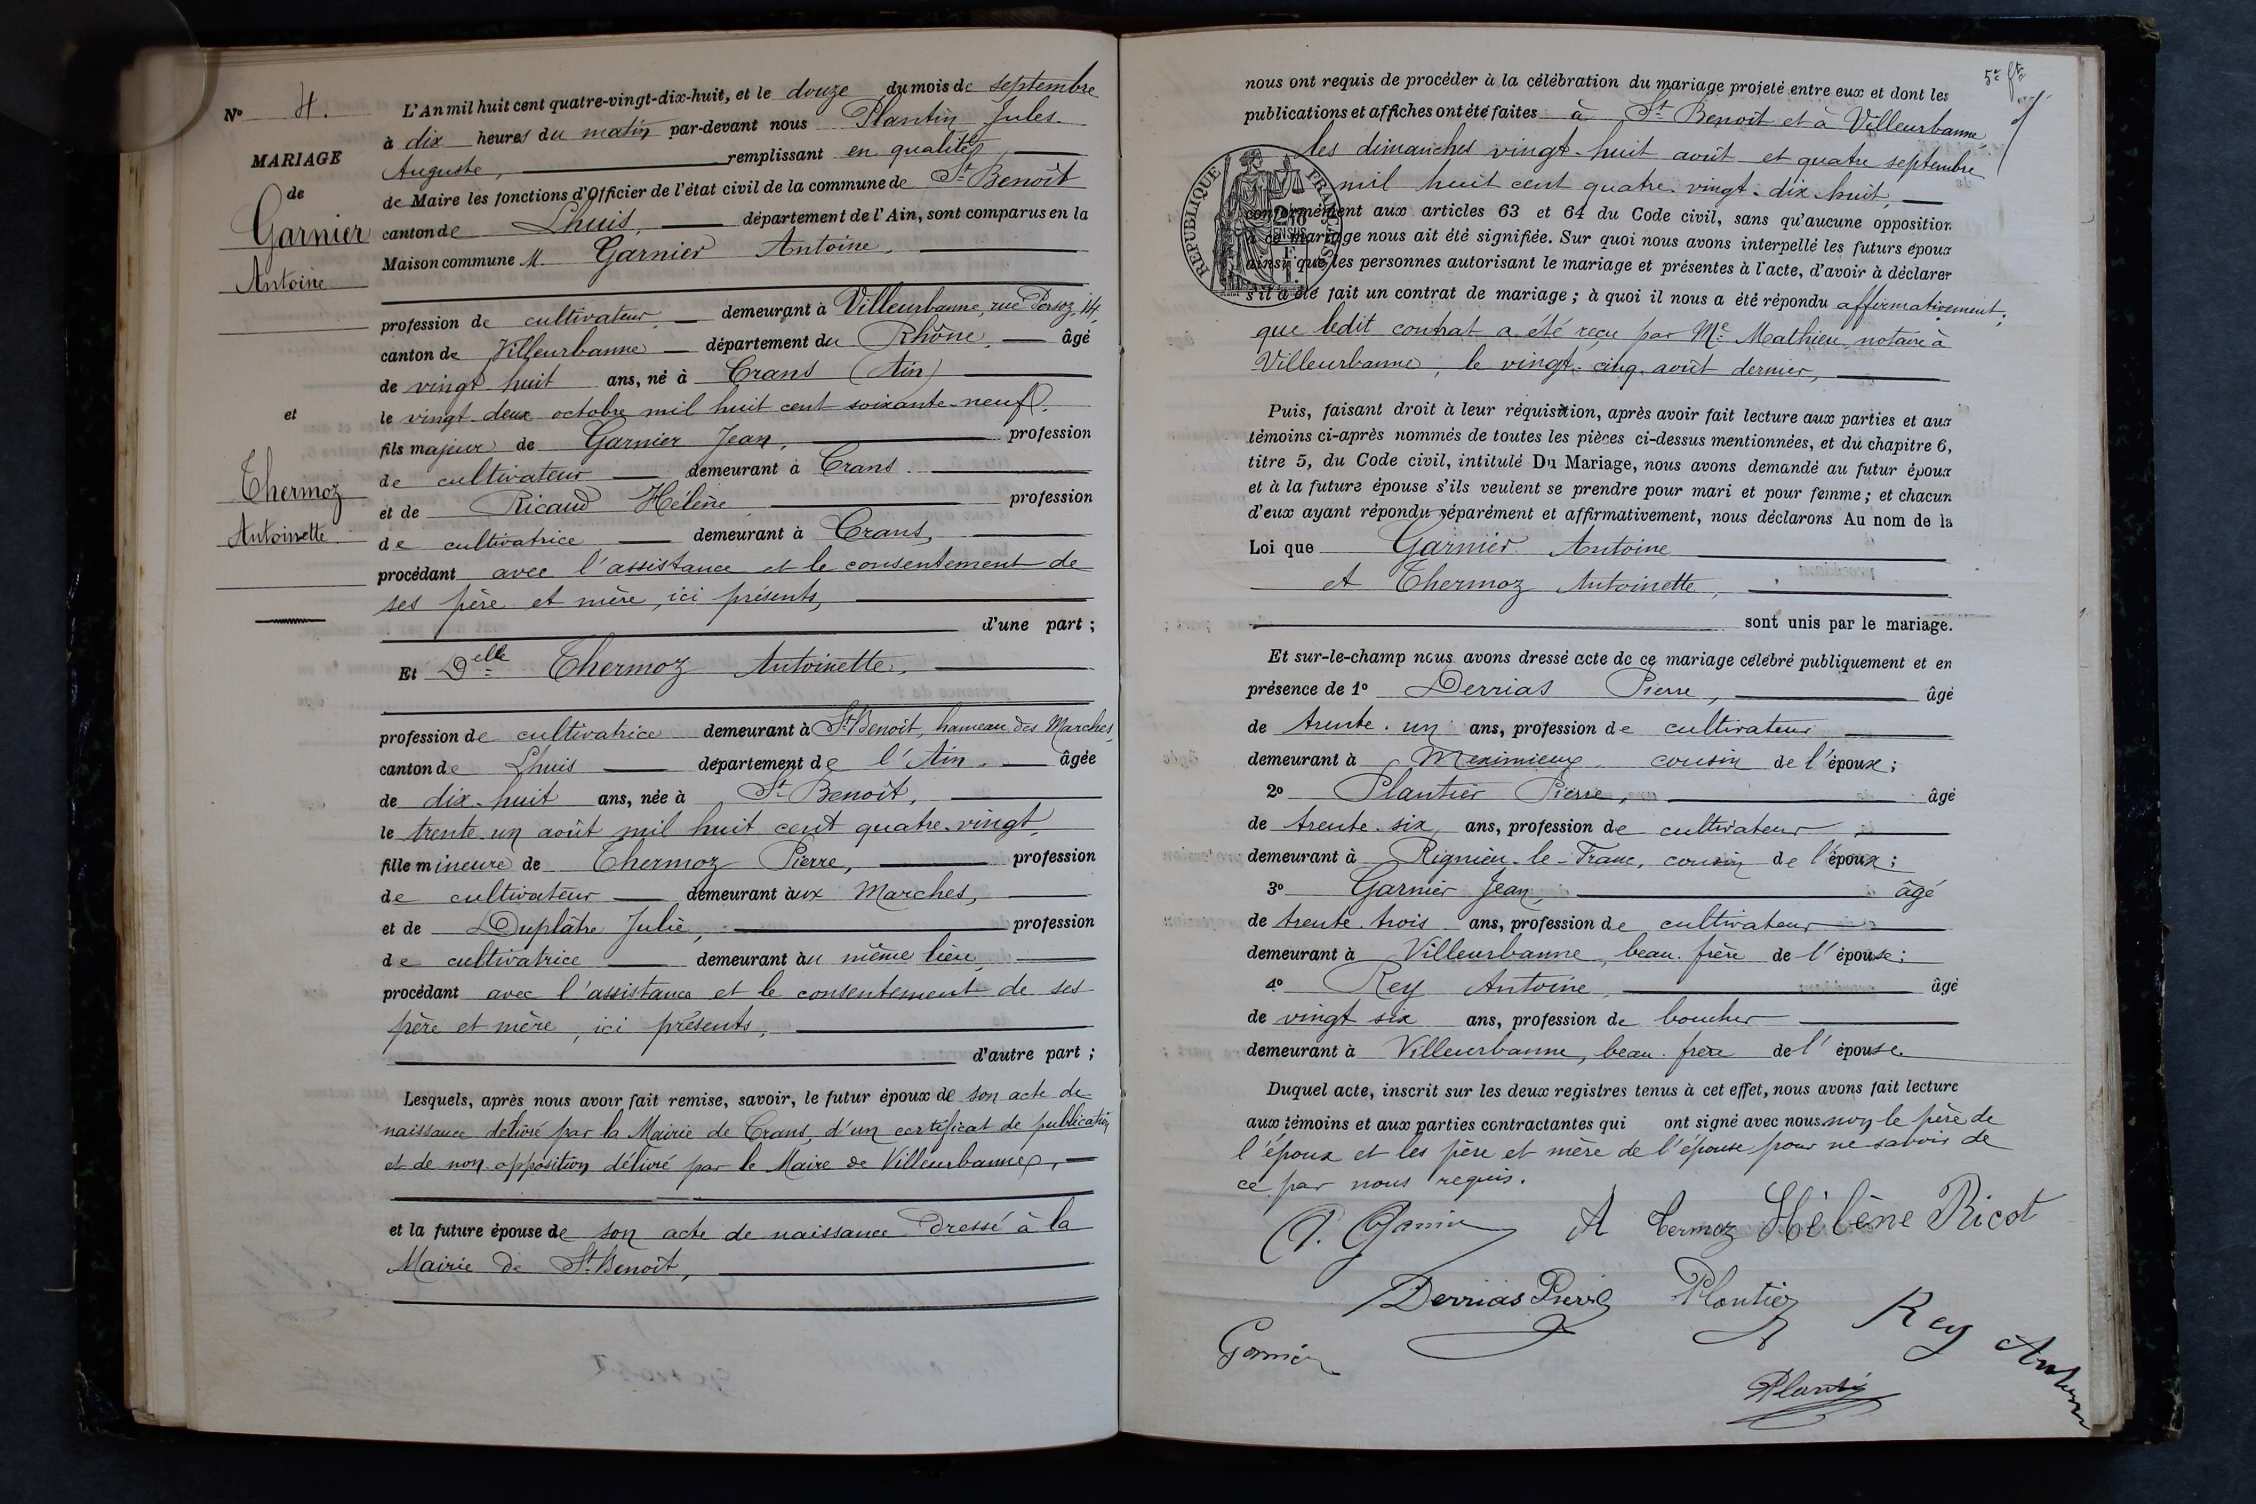 No 4.
MARIAGE
de
Garnier
Antoine
et
Thermoz
Antoinette
L'An mil huit cent quatre-vingt-dix-huit, et le douze du mois de septembre
à dix heures du matin par-devant nous Plantin Jules
Auguste, remplissant en qualité
de Maire les fonctions d'Officier de l'état civil de la commune de St Benoît
canton de Lhuis, département de l'Ain, sont comparus en la
Maison commune M. Garnier Antoine,
profession de cultivateur, demeurant à Villeurbanne, rue Persoz, 14,
canton de Villeurbanne département du Rhône, âgé
de vingt huit ans, né à Crans (Ain)
le vingt-deux octobre mil huit cent soixante-neuf,
fils majeur de Garnier Jean, profession
de cultivateur demeurant à Crans
et de Ricaud Hélène profession
de cultivatrice demeurant à Crans,
procédant avec l'assistance et le consentement de
ses père et mère, ici présents,
d'une part ;
Et Delle Thermoz Antoinette,
profession de cultivatrice demeurant à St Benoît, hameau des Marches,
canton de Lhuis département de l'Ain, âgée
de dix-huit ans, née à St Benoît,
le trente un août mil huit cent quatre-vingt,
fille mineure de Thermoz Pierre, profession
de cultivateur demeurant aux Marches,
et de Duplâtre Julie, profession
de cultivatrice demeurant au même lieu,
procédant avec l'assistance et le consentement de ses
père et mère, ici présents,
d'autre part ;
Lesquels, après nous avoir fait remise, savoir, le futur époux de son acte de
naissance délivré par la Mairie de Crans, d'un certificat de publication
et de non opposition délivré par le Maire de Villeurbanne,
et la future épouse de son acte de naissance dressé à la
Mairie de St Benoît,
nous ont requis de procéder à la célébration du mariage projeté entre eux et dont les
publications et affiches ont été faites à St Benoît et à Villeurbanne,
les dimanches vingt-huit août et quatre septembre
mil huit cent quatre-vingt-dix huit,
RÉPUBLIQUE FRANÇAISE
conformément aux articles 63 et 64 du Code civil, sans qu'aucune opposition
à ce mariage nous ait été signifiée. Sur quoi nous avons interpellé les futurs époux
ainsi que les personnes autorisant le mariage et présentes à l'acte, d'avoir à déclarer
s'il a été fait un contrat de mariage ; à quoi il nous a été répondu affirmativement,
que ledit contrat a été reçu par Me Mathieu, notaire à
Villeurbanne, le vingt-cinq août dernier,
Puis, faisant droit à leur réquisition, après avoir fait lecture aux parties et aux
témoins ci-après nommés de toutes les pièces ci-dessus mentionnées, et du chapitre 6,
titre 5, du Code civil, intitulé Du Mariage, nous avons demandé au futur époux
et à la future épouse s'ils veulent se prendre pour mari et pour femme ; et chacun
d'eux ayant répondu séparément et affirmativement, nous déclarons Au nom de la
Loi que Garnier Antoine
et Thermoz Antoinette,
sont unis par le mariage.
Et sur-le-champ nous avons dressé acte de ce mariage célébré publiquement et en
présence de 1º Derrias Pierre, âgé
de trente-un ans, profession de cultivateur
demeurant à Meximieux cousin de l'époux ;
2º Plantier Pierre, âgé
de trente-six ans, profession de cultivateur
demeurant à Rignieu-le-Franc, cousin de l'époux ;
3º Garnier Jean, âgé
de trente-trois ans, profession de cultivateur
demeurant à Villeurbanne, beau-frère de l'épouse ;
4º Rey Antoine, âgé
de vingt six ans, profession de boucher
demeurant à Villeurbanne, beau-frère de l'épouse.
Duquel acte, inscrit sur les deux registres tenus à cet effet, nous avons fait lecture
aux témoins et aux parties contractantes qui ont signé avec nous non le père de
l'époux et les père et mère de l'épouse pour ne savoir de
ce par nous requis.
A Termoz Hélène Ricot
Derrias Pierre Plantier Rey Antoine
Garnier
Plantin